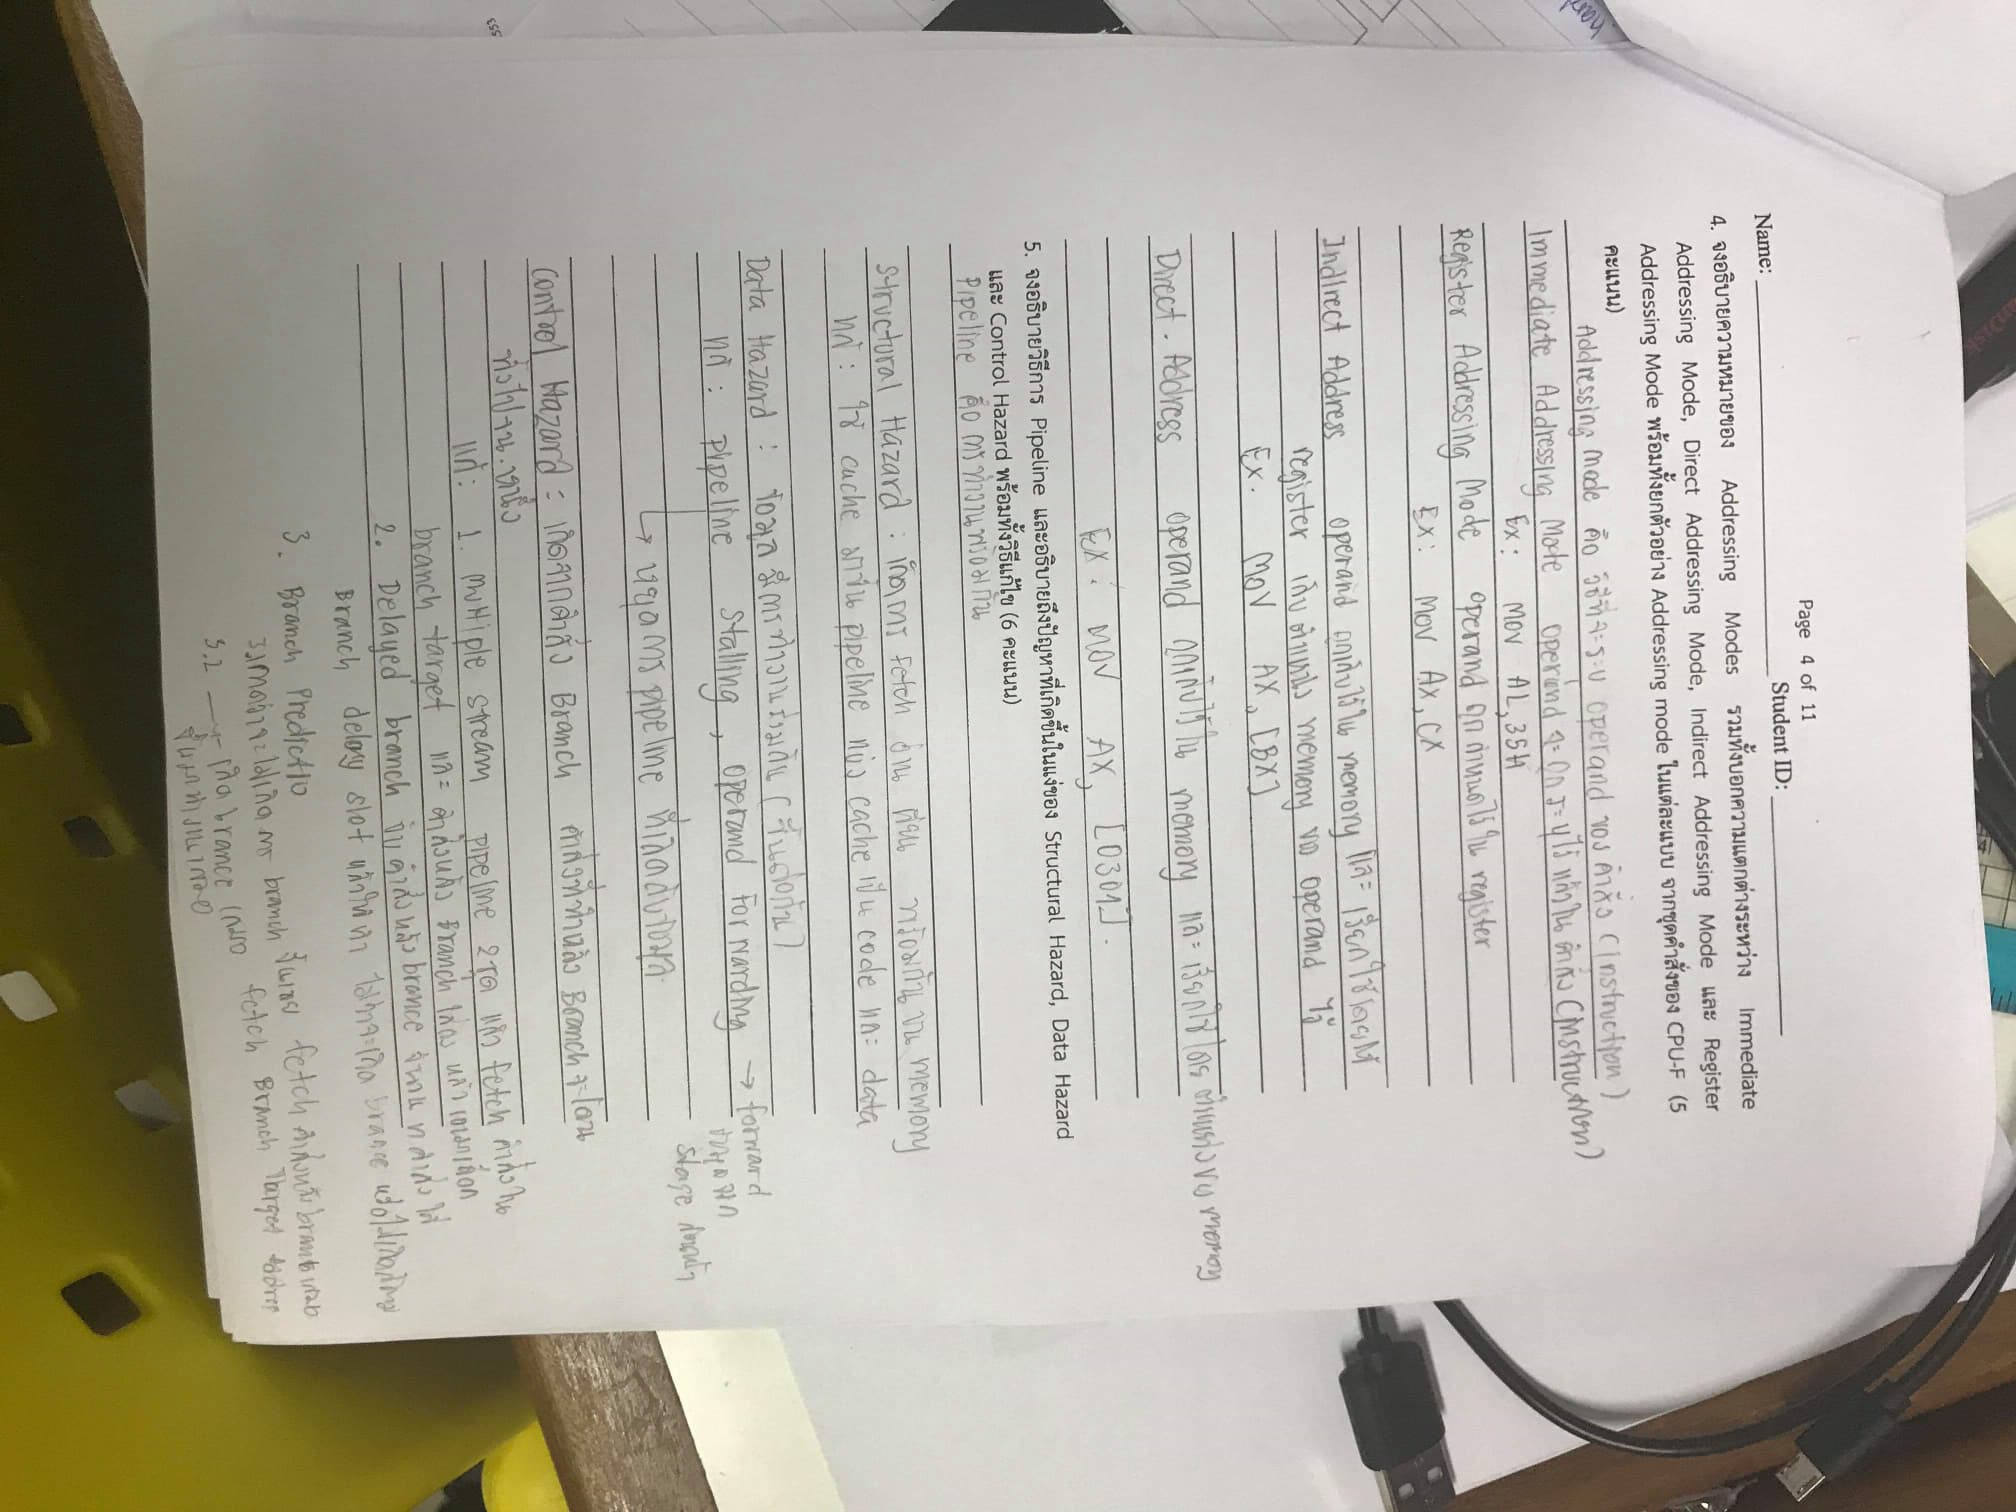 Page 4 of 11
Name: ____________ Student ID: ____________
4. จงอธิบายความหมายของ Addressing Modes รวมทั้งบอกความแตกต่างระหว่าง Immediate
Addressing Mode, Direct Addressing Mode, Indirect Addressing Mode และ Register
Addressing Mode พร้อมทั้งยกตัวอย่าง Addressing mode ในแต่ละแบบ จากชุดคำสั่งของ CPU-F (5
คะแนน)
Addressing Mode คือ วิธีที่จะระบุ operand ของ คำสั่ง (Instruction)
Immediate Addressing Mode operand จะถูกระบุไว้แล้วใน คำสั่ง (Instruction)
Ex: MOV AL,35H
Register Addressing Mode operand ถูกกำหนดไว้ใน register
EX: MOV AX, CX
Indirect Address operand ถูกเก็บไว้ใน memory และ เรียกใช้โดยให้
register เก็บ ตำแหน่ง memory ของ operand ไว้
Ex. MOV AX, [BX]
Direct. Address operand ถูกเก็บไว้ใน memory และ เรียกใช้โดย ตำแหน่งของ memory
EX: MOV AX, [0301].
5. จงอธิบายวิธีการ Pipeline และอธิบายถึงปัญหาที่เกิดขึ้นในแง่ของ Structural Hazard, Data Hazard
และ Control Hazard พร้อมทั้งวิธีแก้ไข (6 คะแนน)
Pipeline คือ การทำงานพร้อมกัน
Structural Hazard : เกิดการ fetch อ่าน เขียน พร้อมกันบน memory
แก้ : ใช้ cache มาขั้น pipeline แบ่ง cache เป็น code และ data
Data Hazard : ข้อมูล มีการทำงานร่วมกัน (ขึ้นต่อกัน)
แก้ : pipeline stalling, operand Forwarding → forward
ข้อมูลจาก
stage ก่อนหน้า
↳ หยุดการ pipeline ที่เกิดกับข้อมูล
Control Hazard = เกิดจากคำสั่ง Branch คำสั่งที่ทำหลัง Branch จะโดน
ทิ้งไป
แก้: 1. Multiple stream pipeline 2 ชุด แล้ว fetch คำสั่งใน
branch target และ คำสั่งหลัง Branch แล้ว
2. Delayed branch จับ คำสั่งหลัง brance จำนวน n คำสั่ง ใส่
Branch delay slot แล้วให้ทำ ไม่ว่าจะเกิด brance หรือไม่เกิดก็ตาม
3. Branch Predictio
คาดว่าจะไม่เกิด การ branch fetch คำสั่งหลัง branch เสมอ
3.2 เกิด brance เสมอ fetch Branch Target Address